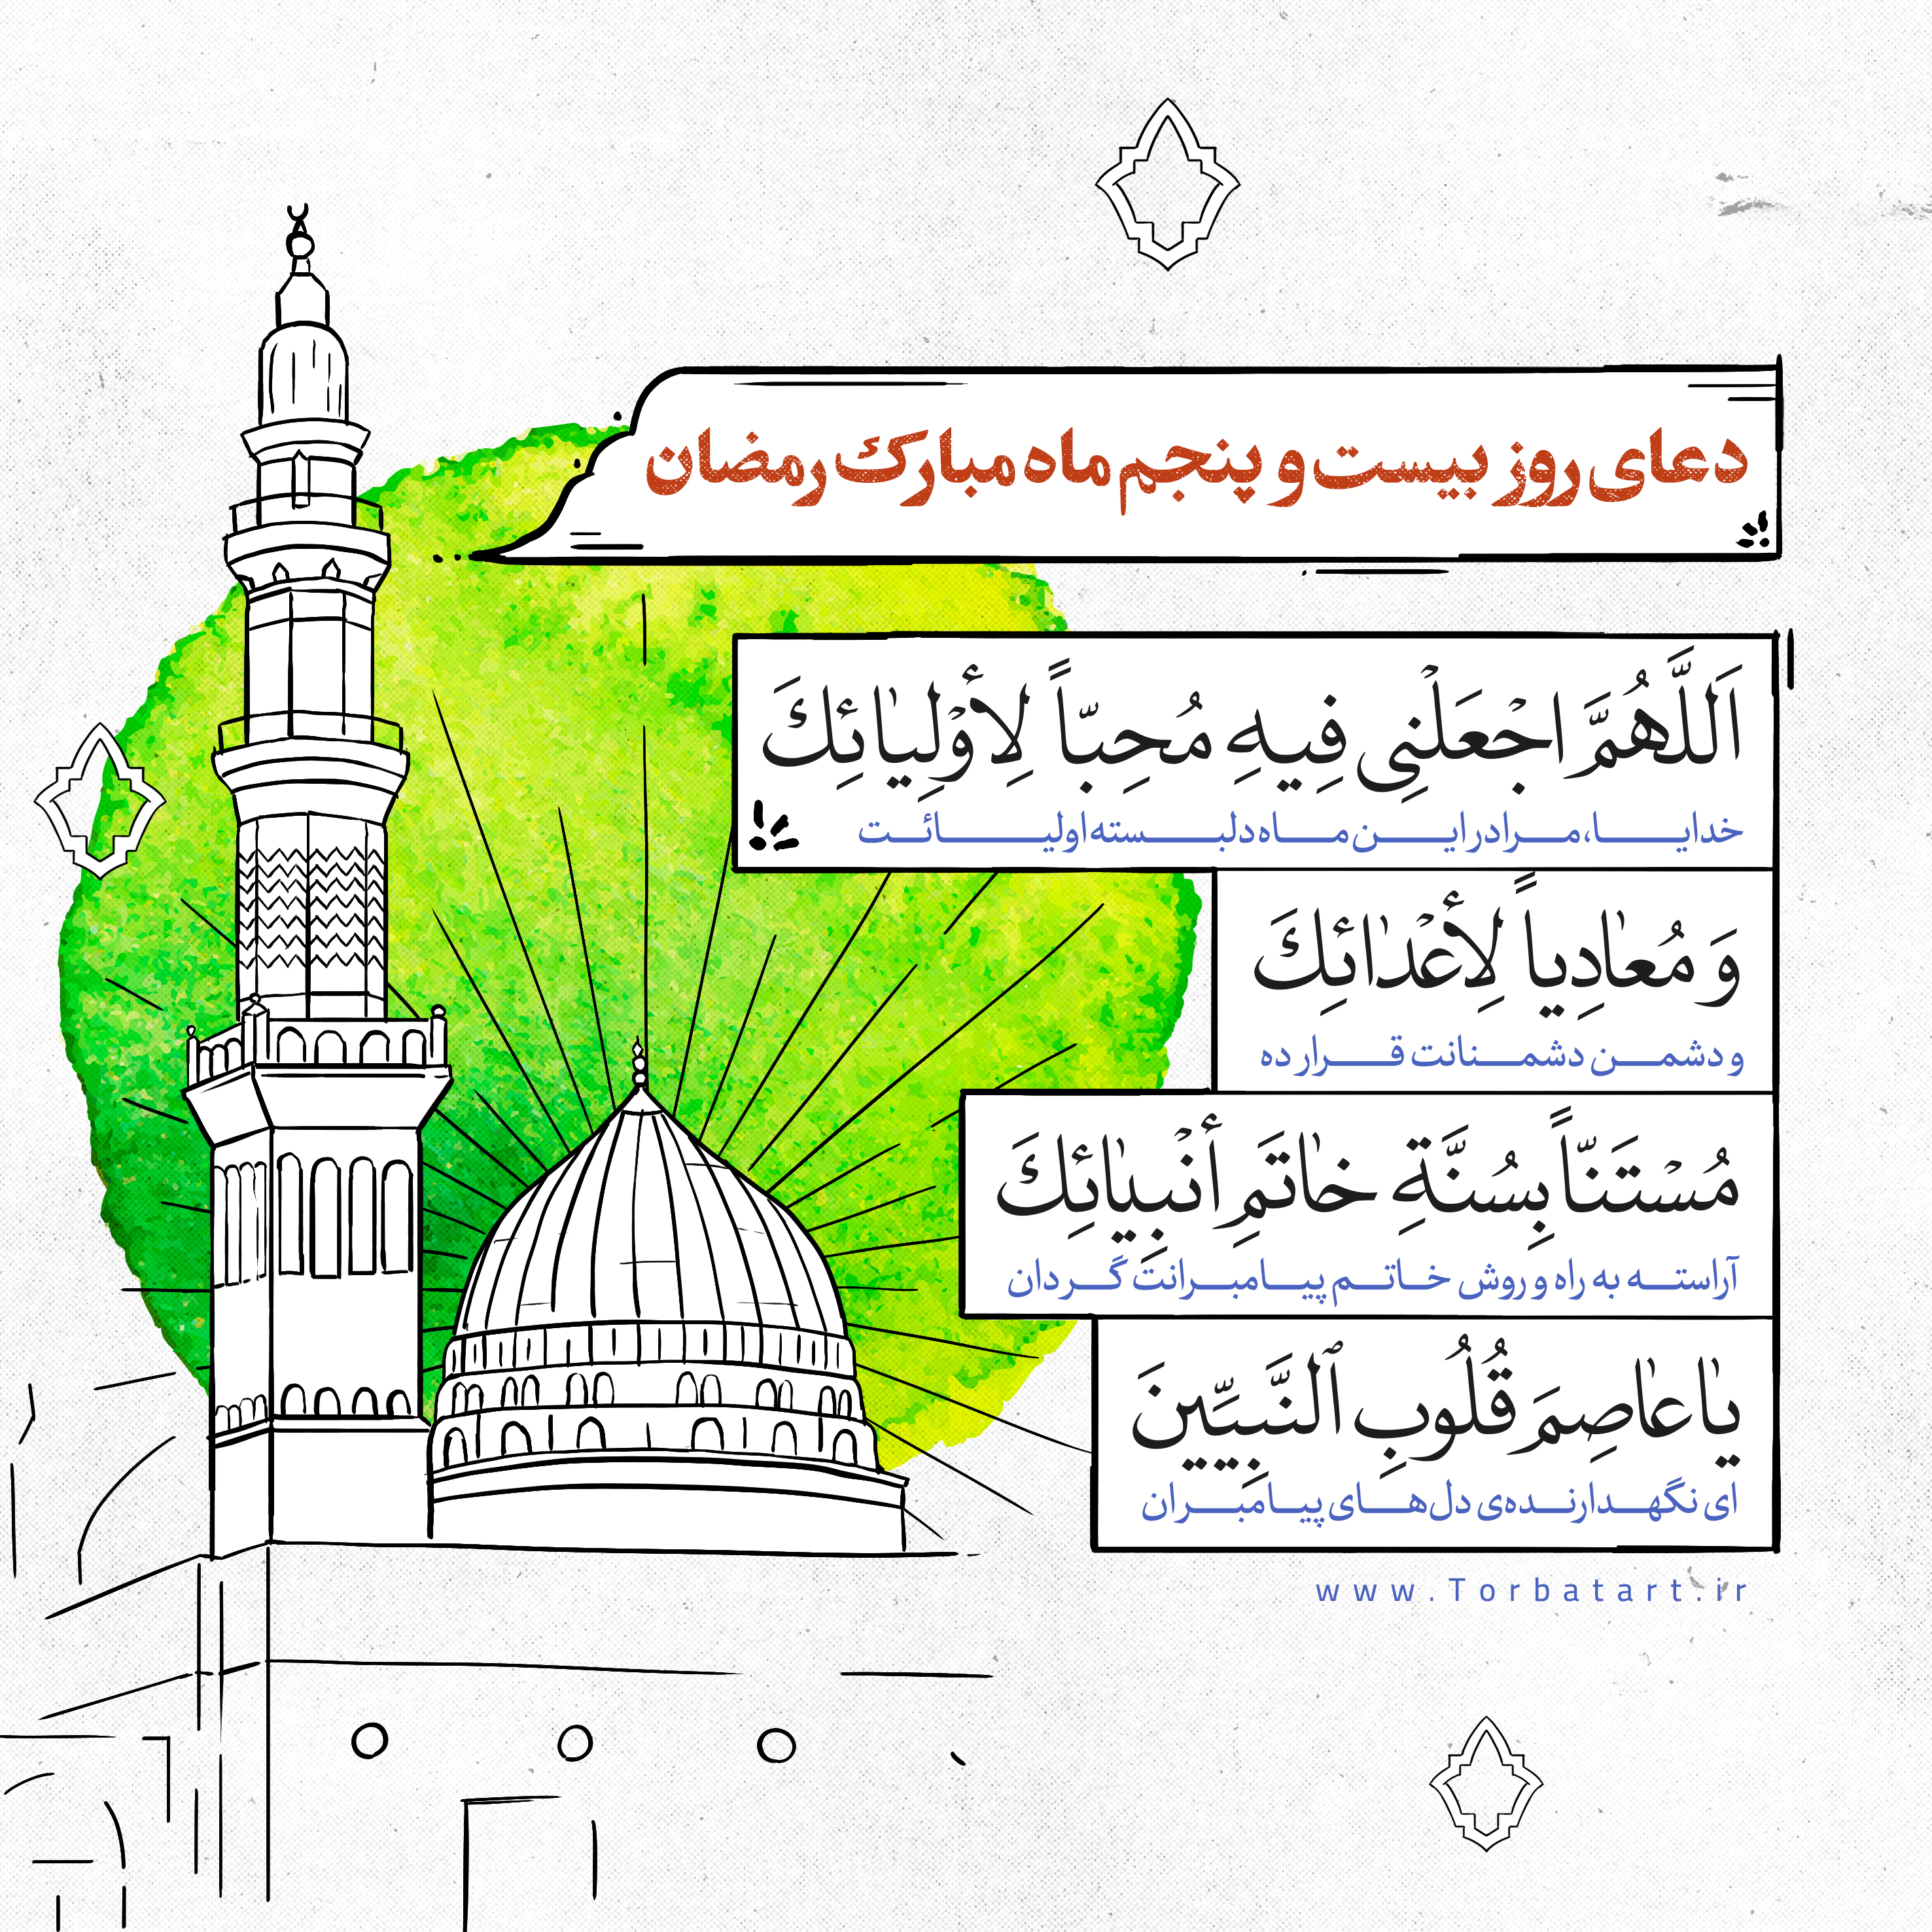 دعای روز بیست و پنجم ماه مبارک رمضان
اَللَّهُمَّ اجْعَلْنِی فِیهِ مُحِبّاً لِأَوْلِیٰائِكَ
خدایا، مرا در این ماه دلبسته اولیائت
وَ مُعٰادِیاً لِأَعْدٰائِكَ
و دشمن دشمنانت قرار ده
مُسْتَنّاً بِسُنَّةِ خٰاتَمِ أَنْبِیٰائِكَ
آراسته به راه و روش خاتم پیامبرانت گردان
یٰا عٰاصِمَ قُلُوبِ ٱلنَّبِیِّینَ
ای نگهدارنده‌ی دل‌های پیامبران
www.Torbatart.ir